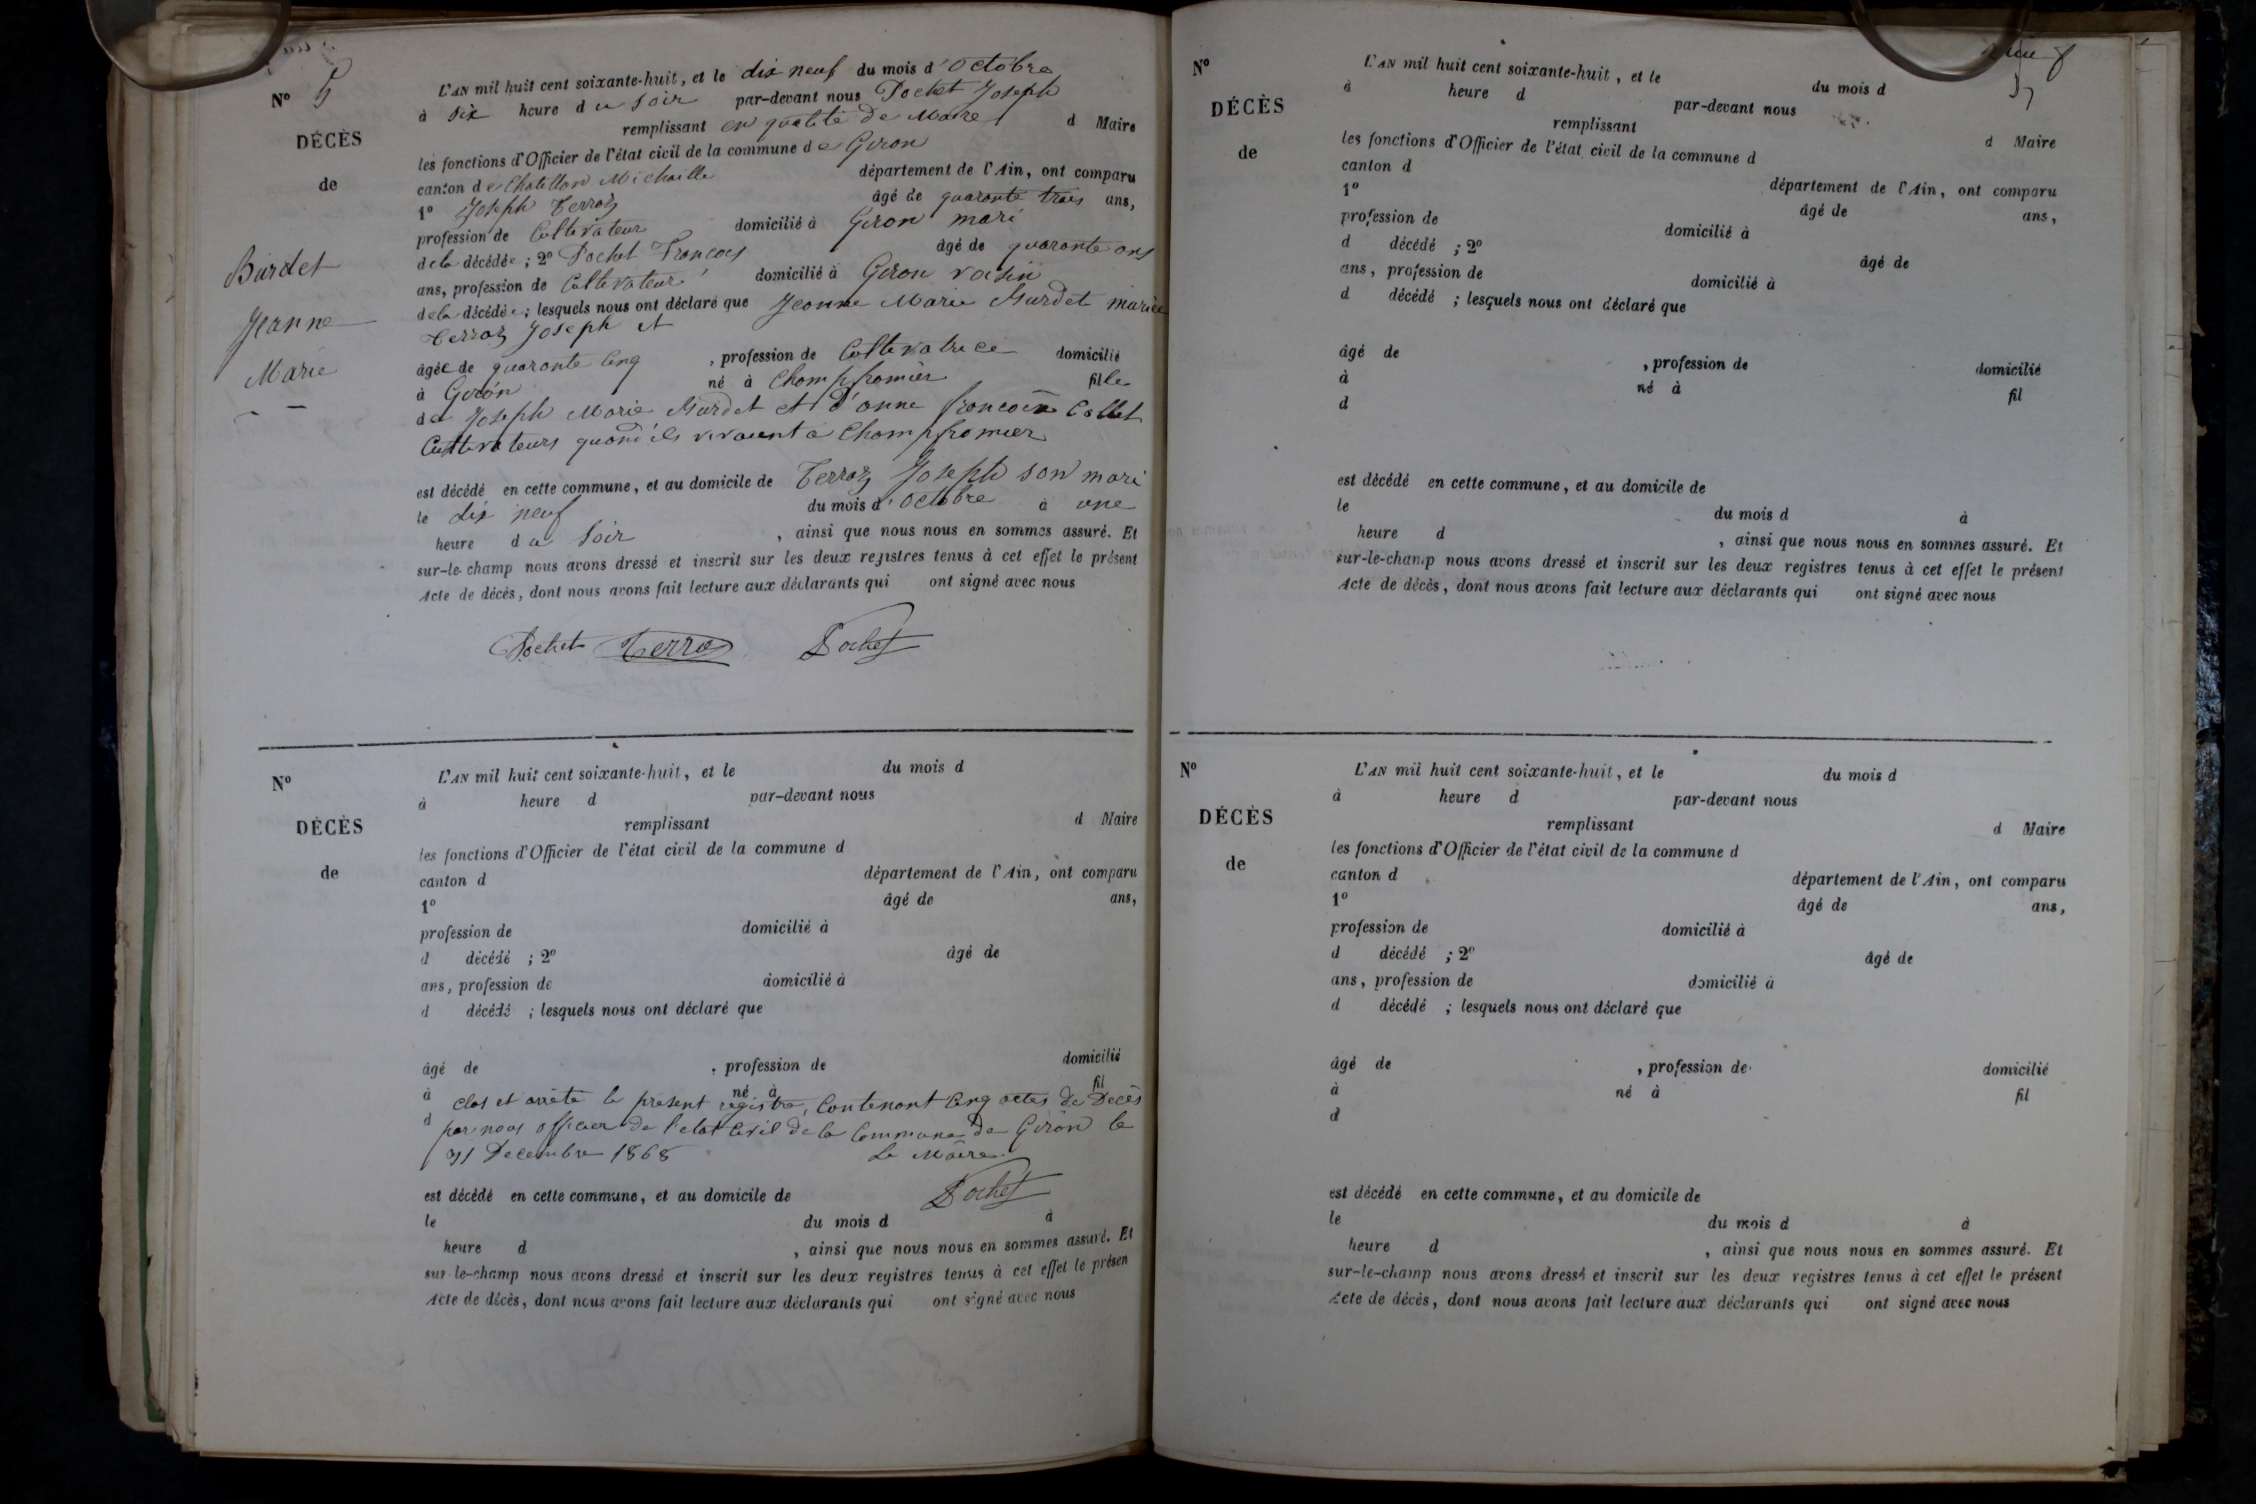 Nº 5
DÉCÈS
de
Burdet
Jeanne
Marie
L'AN mil huit cent soixante-huit, et le dix neuf du mois d'Octobre
à six heure du soir par-devant nous Pochet Joseph
remplissant en qualité de Maire d Maire
les fonctions d'Officier de l'état civil de la commune de Giron
canton de Chatillon Michaille département de l'Ain, ont comparu
1º Joseph Terroz âgé de quarante trois ans,
profession de Cultivateur domicilié à Giron mari
de la décédée ; 2º Pochet François âgé de quarante ans
ans, profession de Cultivateur domicilié à Giron voisin
de la décédée ; lesquels nous ont déclaré que Jeanne Marie Burdet mariée
Terroz Joseph et
âgée de quarante cinq , profession de Cultivatrice domicilié
à Giron né à Champfromier fille
de Joseph Marie Burdet et d'anne francoise Collet
Cultivateurs quand ils vivaient à Champfromier
est décédé en cette commune, et au domicile de Terroz Joseph son mari
le dix neuf du mois d'Octobre à une
heure du soir , ainsi que nous nous en sommes assuré. Et
sur-le-champ nous avons dressé et inscrit sur les deux registres tenus à cet effet le présent
Acte de décès, dont nous avons fait lecture aux déclarants qui ont signé avec nous
Pochet Terroz Pochet
Nº
DÉCÈS
de
L'AN mil huit cent soixante-huit, et le du mois d
à heure d par-devant nous
remplissant d Maire
les fonctions d'Officier de l'état civil de la commune d
canton d département de l'Ain, ont comparu
1º âgé de ans,
profession de domicilié à
d décédé ; 2º âgé de
ans, profession de domicilié à
d décédé ; lesquels nous ont déclaré que
âgé de , profession de domicilié
à né à fil
d
clos et arrêté le présent registre, Contenant Cinq actes de Décès
par nous officier de l'état Civil de la Commune de Giron le
31 Décembre 1868 Le Maire
est décédé en cette commune, et au domicile de Pochet
le du mois d à
heure d , ainsi que nous nous en sommes assuré. Et
sur-le-champ nous avons dressé et inscrit sur les deux registres tenus à cet effet le présen
Acte de décès, dont nous avons fait lecture aux déclarants qui ont signé avec nous
Nº
DÉCÈS
de
L'AN mil huit cent soixante-huit, et le du mois d
à heure d par-devant nous
remplissant d Maire
les fonctions d'Officier de l'état civil de la commune d
canton d département de l'Ain, ont comparu
1º âgé de ans,
profession de domicilié à
d décédé ; 2º âgé de
ans, profession de domicilié à
d décédé ; lesquels nous ont déclaré que
âgé de , profession de domicilié
à né à fil
d
est décédé en cette commune, et au domicile de
le du mois d à
heure d , ainsi que nous nous en sommes assuré. Et
sur-le-champ nous avons dressé et inscrit sur les deux registres tenus à cet effet le présent
Acte de décès, dont nous avons fait lecture aux déclarants qui ont signé avec nous
Nº
DÉCÈS
de
L'AN mil huit cent soixante-huit, et le du mois d
à heure d par-devant nous
remplissant d Maire
les fonctions d'Officier de l'état civil de la commune d
canton d département de l'Ain, ont comparu
1º âgé de ans,
profession de domicilié à
d décédé ; 2º âgé de
ans, profession de domicilié à
d décédé ; lesquels nous ont déclaré que
âgé de , profession de domicilié
à né à fil
d
est décédé en cette commune, et au domicile de
le du mois d à
heure d , ainsi que nous nous en sommes assuré. Et
sur-le-champ nous avons dressé et inscrit sur les deux registres tenus à cet effet le présent
Acte de décès, dont nous avons fait lecture aux déclarants qui ont signé avec nous